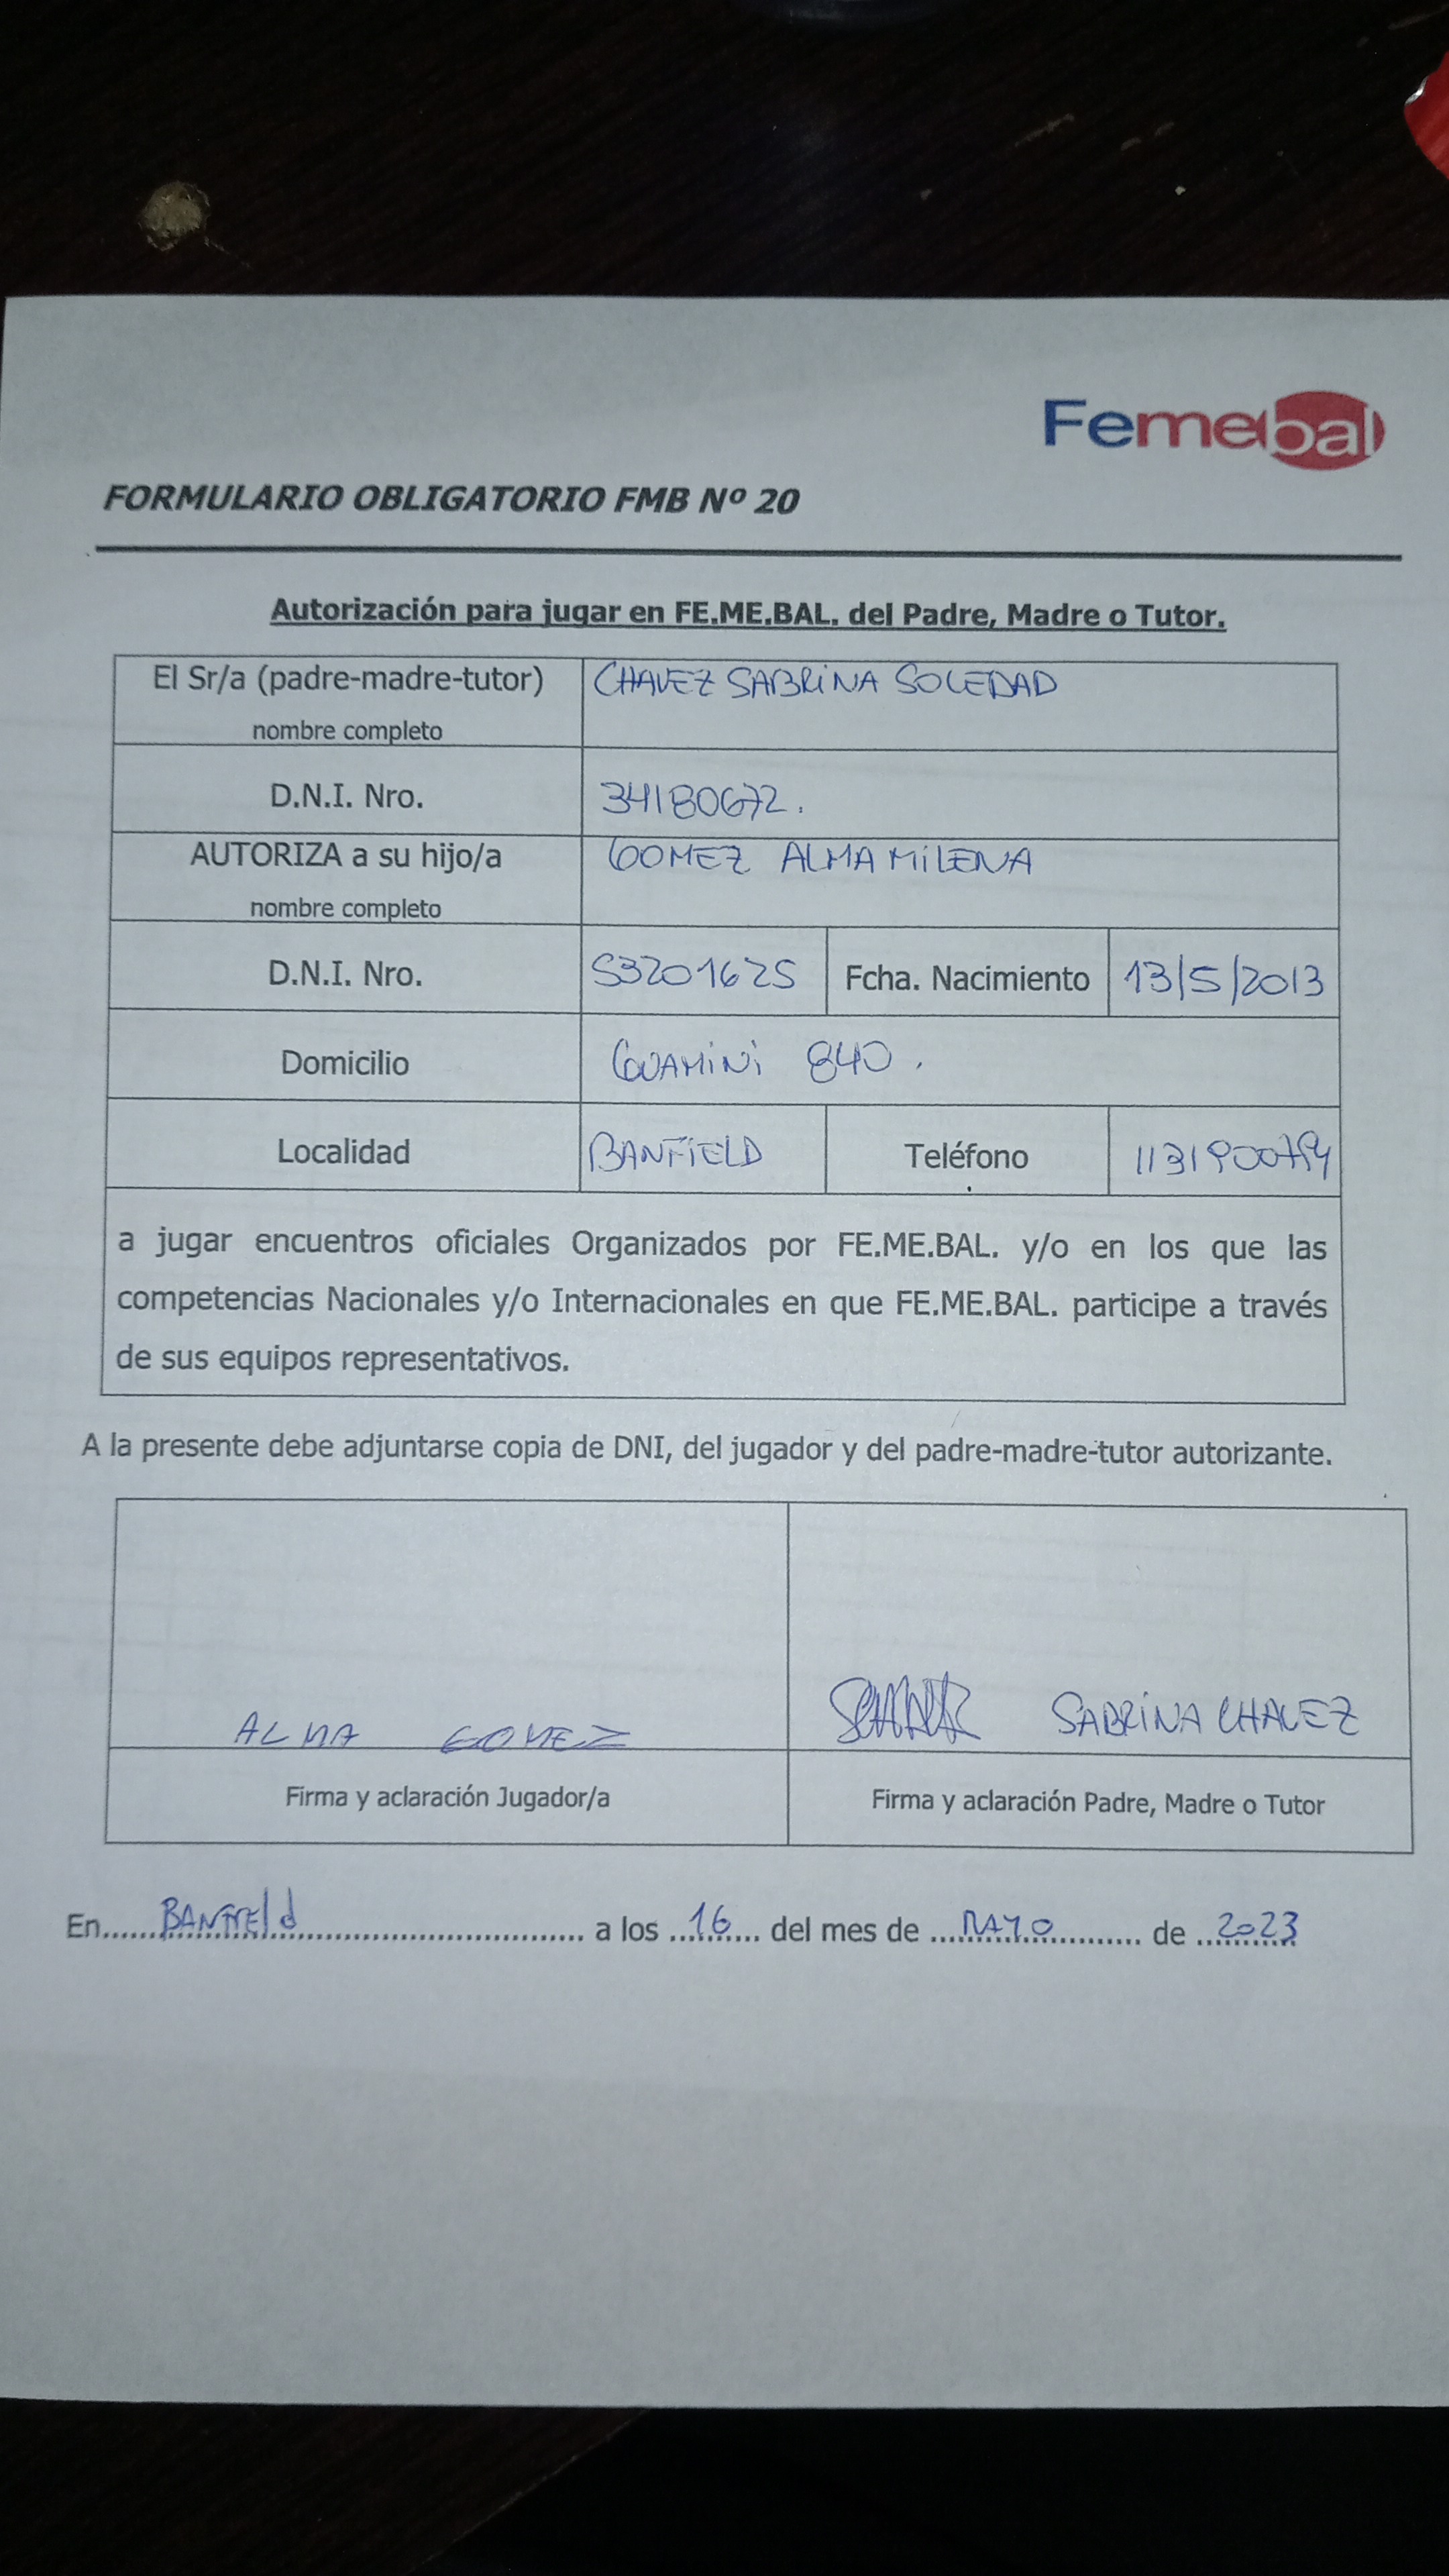 Femebal
FORMULARIO OBLIGATORIO FMB Nº 20
Autorización para jugar en FE.ME.BAL. del Padre, Madre o Tutor.
El Sr/a (padre-madre-tutor) CHAVEZ SABRINA SOLEDAD
nombre completo
D.N.I. Nro. 34180672.
AUTORIZA a su hijo/a GOMEZ ALMA MILENA
nombre completo
D.N.I. Nro. 53201625 Fcha. Nacimiento 13/5/2013
Domicilio GUAMINI 840.
Localidad BANFIELD Teléfono
a jugar encuentros oficiales Organizados por FE.ME.BAL. y/o en los que las
competencias Nacionales y/o Internacionales en que FE.ME.BAL. participe a través
de sus equipos representativos.
A la presente debe adjuntarse copia de DNI, del jugador y del padre-madre-tutor autorizante.
ALMA GOMEZ SABRINA CHAVEZ
Firma y aclaración Jugador/a Firma y aclaración Padre, Madre o Tutor
En......BANFIELD.............................. a los ..16.... del mes de ...MAYO.......... de ..2023